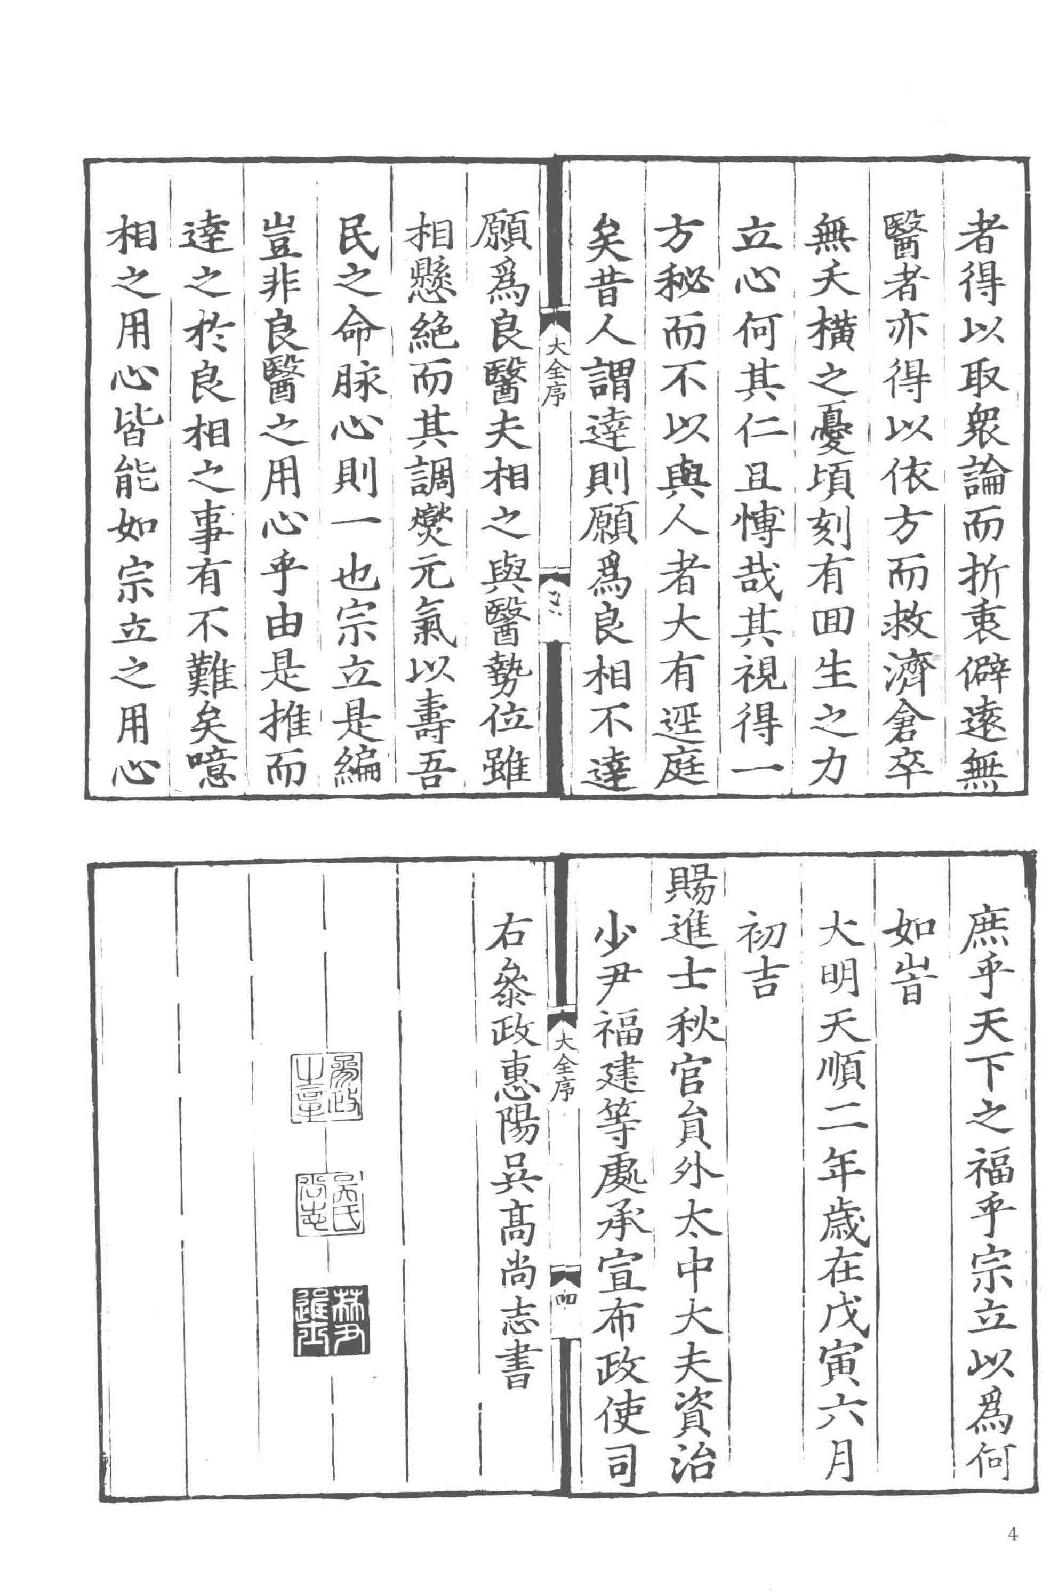 者得以取衆論而折衷僻遠無
醫者亦得以依方而救濟倉卒
無夭橫之憂頃刻有回生之力
立心何其仁且愽哉其視得一
方秘而不以與人者大有逕庭
矣昔人謂達則願爲良相不達
大全序
願爲良醫夫相之與醫勢位雖
相懸絶而其調爕元氣以壽吾
民之命脉心則一也宗立是編
豈非良醫之用心乎由是推而
達之於良相之事有不難矣噫
相之用心皆能如宗立之用心
庶乎天下之福乎宗立以爲何
如旹
大明天順二年歲在戊寅六月
初吉
賜進士秋官員外太中大夫資治
少尹福建等處承宣布政使司
大全序
四
右叅政惠陽吳髙尚志書
吳氏
尚志
4